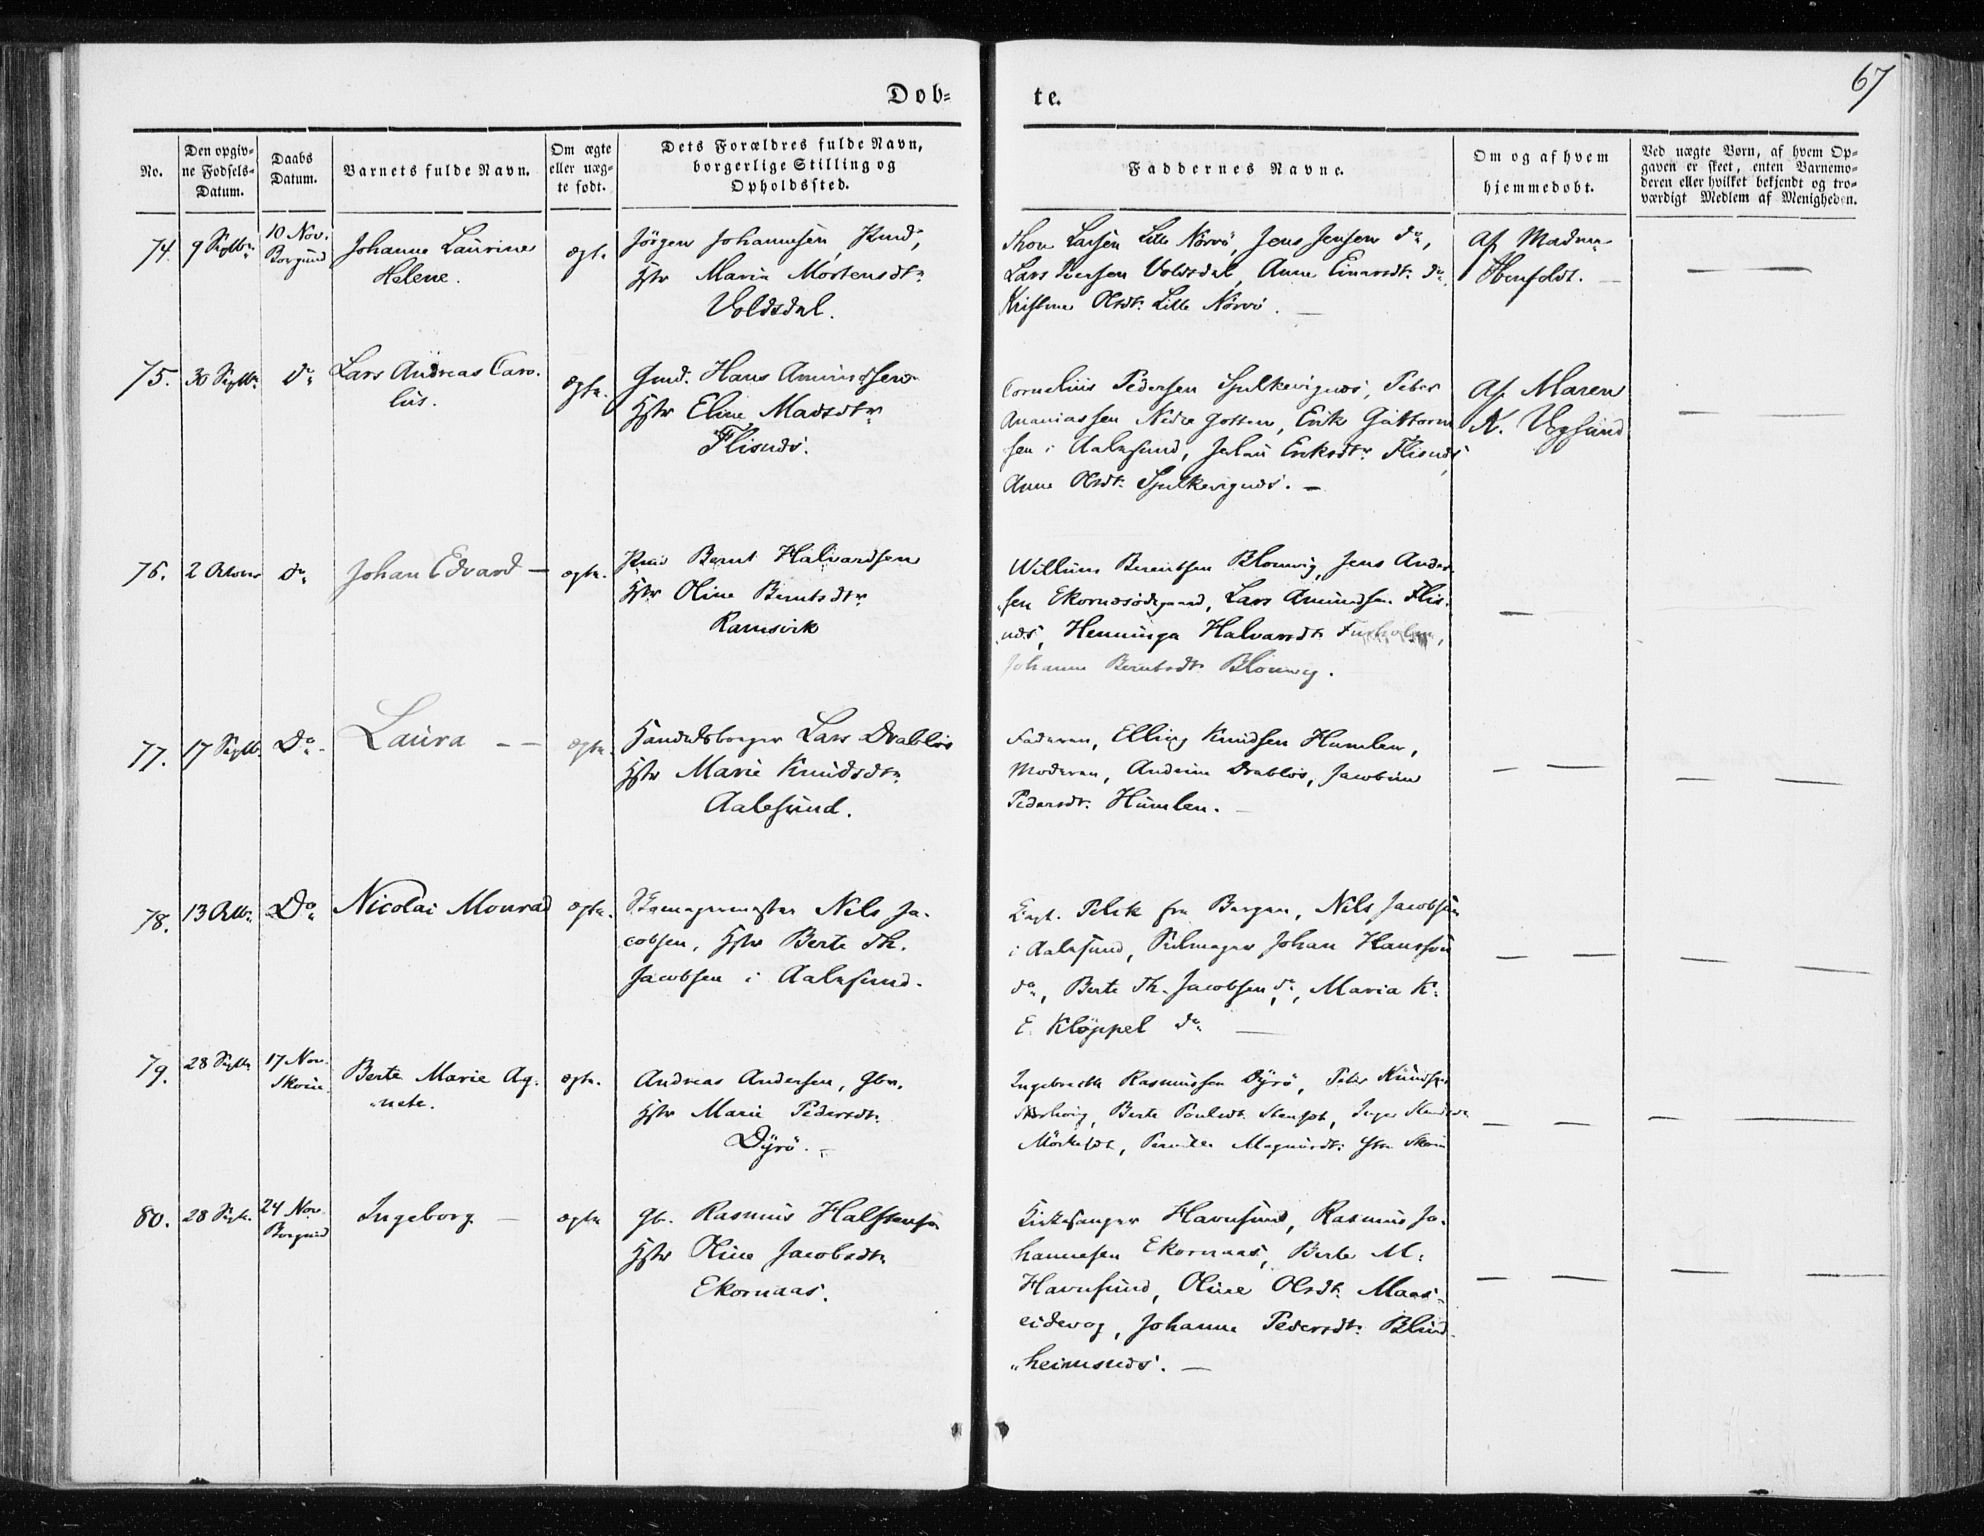 67
Døb-
te.
No.
Den opgiv-
ne Fødsels-
Datum.
Daabs
Datum.
Barnets fulde Navn.
Om ægte
eller uæg-
te født.
Dets Forældres fulde Navn,
borgerlige Stilling og
Opholdssted.
Faddernes Navne.
Om og af hvem
hjemmedøbt.
Ved uægte Børn, af hvem Op-
gaven er skeet, enten Barnemo-
deren eller hvilket bekjendt og tro-
værdigt Medlem af Menigheden.
74. 9 Septbr
10 Nov.
Borgund
Johanne Laurine
Helene.
ægt.
Jörgen Johannesen,
Hstr Maria Mortensdtr
Voldsdal.
Larsen Lille Nörvö, Jens Jensen do,
Lars Iversen Voldsdal, Anne Einarsdt. do,
Kristine Olsdt. Lille Nörvö. —
Af Madm
— —
75. 30 Septbr do
Lars Andreas Caro-
lus.
ægte.
Gmd. Hans Amundsen
Hstr Eline Madsdtr
Flisnæs.
Cornelius Pedersen Spilkevignæs, Peter
Ananiassen Nedre Gotten, Erik Guttorm
sen i Aalesund, Eriksdtr Flisnæs,
Anne Olsdt. Spilkevignæs. —
Af Maren
K.
— —
76. 2 Octobr do
Johan Edvard —
ægte.
Bernt Halvardsen
Hstr Oline Berntsdtr
Ramsvik
Willum Berentsen Blomvig, Jens Ander-
sen Ekornæsödegaard, Lars Amundsen Flis-
næs, Henninga Halvarsdt. Furholm,
Johanne Berntsdt. Blomvig.
—
77. 17 Septb. Do
Laura — —
ægte.
Handelsborger Lars Drabløs
Hstr Marie Knudsdtr
Aalesund.
Faderen, Elling Knudsen Humlen,
Moderen, Andrine Drabløs, Jacobine
Pedersdt. Humlen. —
— — — —
78. 13 Octbr Do
Nicolai Monrad
ægte.
Skomagermester Nils Ja-
cobsen, Hstr Berte Th.
Jacobsen i Aalesund.
Capt. fra Bergen, Nils Jacobsen
i Aalesund, Johan Hanssen
do, Berte Th. Jacobsen do, Maria K.
E. Klöppel do —
— — — —
79. 28 Septbr
17 Nov.
Skoue.
Berte Marie Ag-
nete.
ægte.
Andreas Andersen, Gbr.
Hstr Marie Pedersdt.
Dyrö. —
Ingebrecth Rasmussen Dyrö, Peter Knudsen
Berte Poulsdt. Inger
Magnusdt.
— — — —
80. 28 Septbr.
24 Nov.
Borgund
Ingeborg —
ægte
Gb. Rasmus Halstensen
Hstr Oline Jacobsdtr
Ekornaas.
Kirkesanger Havnsund, Rasmus Jo-
hannesen Ekornaas, Berte M.
Havnsund, Oline Olsdt. Maas-
eidevog, Johanne Pedersdt. Blind-
heimsnæs. —
— — — —